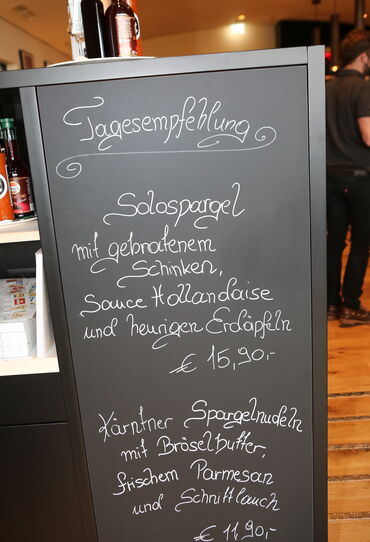 Tagesempfehlung
Solospargel
mit gebratenem
Schinken,
Sauce Hollandaise
und heurigen Erdäpfeln
€ 15,90,-
Kärntner Spargelnudeln
mit Bröselbutter,
frischem Parmesan
und Schnittlauch
€ 11,90,-